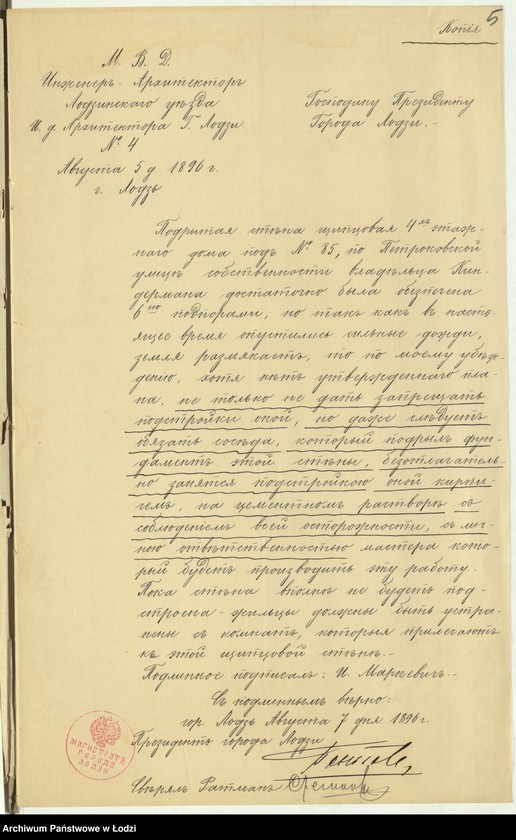 5
Копія
М. В. Д.
Инженеръ-Архитекторъ
Лодзинскаго уѣзда
И. д. Архитектора Г. Лодзи
№ 4
Августа 5 д 1896 г.
г. Лодзь
Господину Президенту
Города Лодзи.-
Подрытая стѣна щипцовая 4хъ этаж-
наго дома подъ № 85, по Петроковской
улицѣ собственности владѣльца Кин-
дермана достаточно была обезпечена
6ью подпорами, но такъ какъ въ насто-
ящее время опустились сильные дожди,
земля размякаетъ, то по моему убѣж-
денію, хотя нѣтъ утвержденнаго пла-
на, не только не дать запрещать
подстройки оной, но даже слѣдуетъ
обязать сосѣда, который подрылъ фун-
даментъ этой стѣны, безотлагатель-
но занятся подстройкою оной кирпи-
чемъ, на цементномъ растворѣ съ
соблюденіемъ всей осторожности, съ лич-
ною отвѣтственностью мастера кото-
рый будетъ производить эту работу.-
Пока стѣна вполнѣ не будетъ под-
строена - жильцы должны быть устра-
нены съ комнатъ, которыя прилегаютъ
къ этой щипцовой стѣнѣ.-
Подлинное подписалъ: И. Маркевичъ.-
Съ подлиннымъ вѣрно:
гор. Лодзь Августа 7 дня 1896 г.
Президентъ города Лодзи
МАГИСТРАТЪ ГОРОДА ЛОДЗИ
Свѣрялъ Ратманъ
Archiwum Państwowe w Łodzi